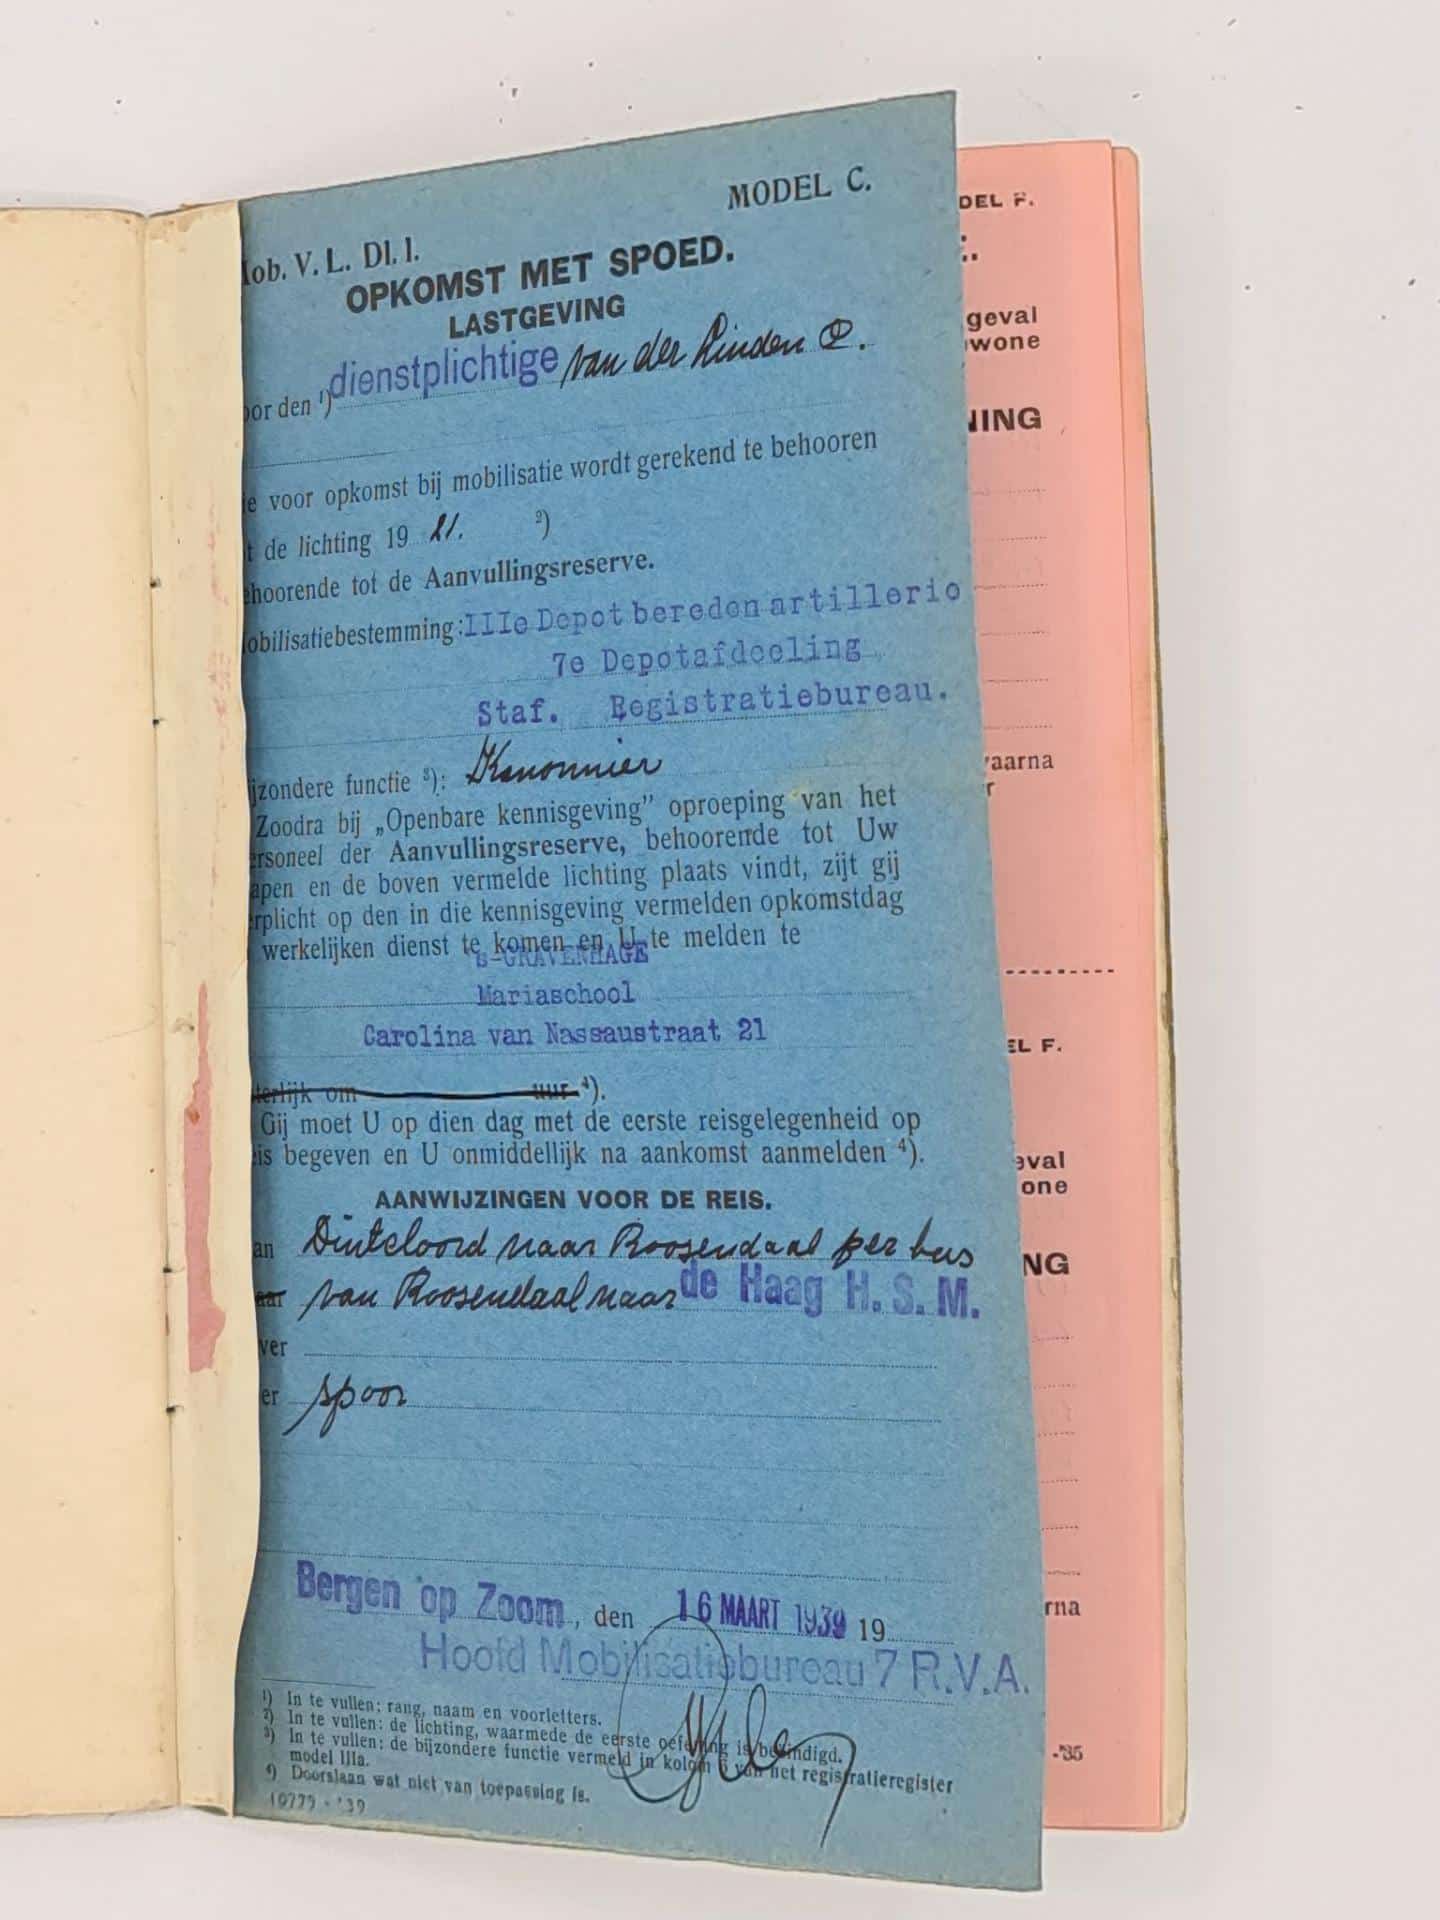 MODEL C.
Mob. V. L. Dl. I.
OPKOMST MET SPOED.
LASTGEVING
oor den ¹) dienstplichtige van der Linden
ie voor opkomst bij mobilisatie wordt gerekend te behooren
t de lichting 19 21. ²)
ehoorende tot de Aanvullingsreserve.
obilisatiebestemming: IIIe Depot bereden artillerie
7e Depotafdeeling
Staf. Registratiebureau.
ijzondere functie ³): Kanonnier
Zoodra bij „Openbare kennisgeving” oproeping van het
ersoneel der Aanvullingsreserve, behoorende tot Uw
apen en de boven vermelde lichting plaats vindt, zijt gij
erplicht op den in die kennisgeving vermelden opkomstdag
werkelijken dienst te komen en U te melden te
s-GRAVENHAGE
Mariaschool
Carolina van Nassaustraat 21
terlijk om uur ⁴).
Gij moet U op dien dag met de eerste reisgelegenheid op
eis begeven en U onmiddellijk na aankomst aanmelden ⁴).
AANWIJZINGEN VOOR DE REIS.
an Dinteloord naar Roosendaal per bus
aar van Roosendaal naar de Haag H. S. M.
ver
er spoor
Bergen op Zoom, den 16 MAART 1939 19
Hoofd Mobilisatiebureau 7 R.V.A.
¹) In te vullen; rang, naam en voorletters.
²) In te vullen: de lichting, waarmede de eerste oefening is beëindigd.
³) In te vullen; de bijzondere functie vermeld in kolom 6 van het registratieregister
model IIIa.
⁴) Doorslaan wat niet van toepassing is.
10779 - '39
DEL F.
E.
geval
wone
NING
vaarna
r
EL F.
eval
one
NG
rna
-'35